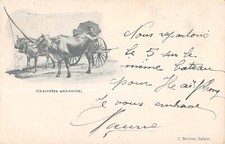 Nous repartons
le 5 sur le
même bateau
pour Haïphong
Je vous embrasse
Charrette annamite.